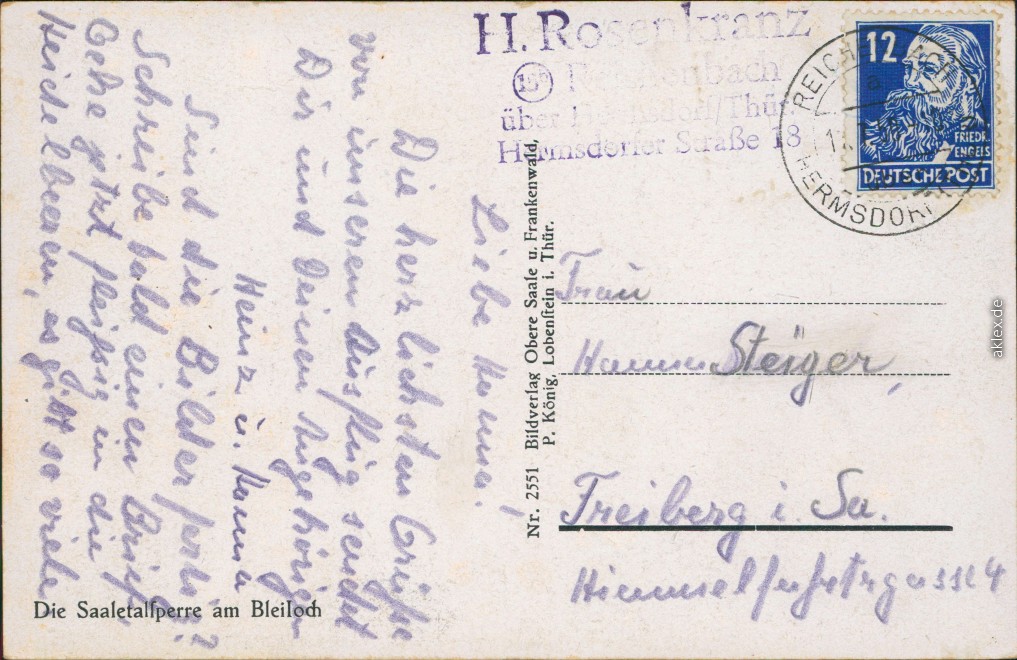 H. Rosenkranz
15b
über Hermsdorf/Thür.
Hermsdorfer Straße 18
12
FRIEDR.
ENGELS
DEUTSCHE POST
HERMSDORF
Liebe Hanna!
Die herzlichsten Grüße
von unserem Ausflug sendet
Dir und Deinen Angehörigen
Heinz u. Hanna
Sind die Bilder fertig?
Schreibe bald einen Brief.
Gehe jetzt fleißig in die
Heidelbeeren, es gibt so viele
Nr. 2551 Bildverlag Obere Saale u. Frankenwald,
P. König, Lobenstein i. Thür.
Frau
Hanna Steiger,
Freiberg i. Sa.
Himmelfahrtsgasse 4
Die Saaletalsperre am Bleiloch
aklex.de